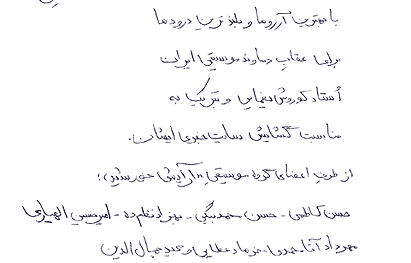 با بهترین آرزوها و بلندترین درودها
برای عقاب دماوند موسیقی ایران
استاد کوروش یغمایی و تبریک به
مناسبت گشایش سایت خبری ایشان.
از طرف اعضای گروه موسیقی «آرامش خورشید»؛
حسن کاظمی - حسن حمدبیگی - بهزاد نظم ده - امیرحسین الهیاری
مهرداد آقامحمدی - فرهاد عطایی و عبید جمال الدین